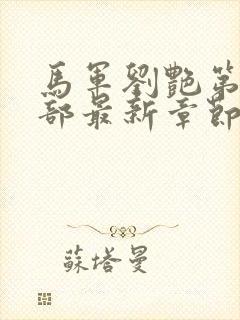 馬軍劉艷第
部最新章節
蘇塔曼